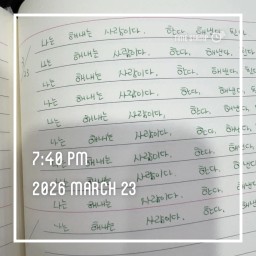 나는 해내는 사람이다. 한다. 해낸다. 된다
나는 해내는 사람이다. 한다. 해낸다.
나는 해내는 사람이다. 한다. 해낸다,
나는 해내는 사람이다. 한다. 해낸다.
나는 해내는 사람이다. 한다. 해낸다.
나는 해내는 사람이다, 한다. 해낸다.
나는 해내는 사람이다. 한다. 해낸
7:40 PM
나는 해내는 사람이다. 한다. 해낸
2026 MARCH 23
나는 해내는 사람이다. 한다. 해
나는 해내는 사람이다. 한다. 해
나는 해내는 사람이다. 한다,